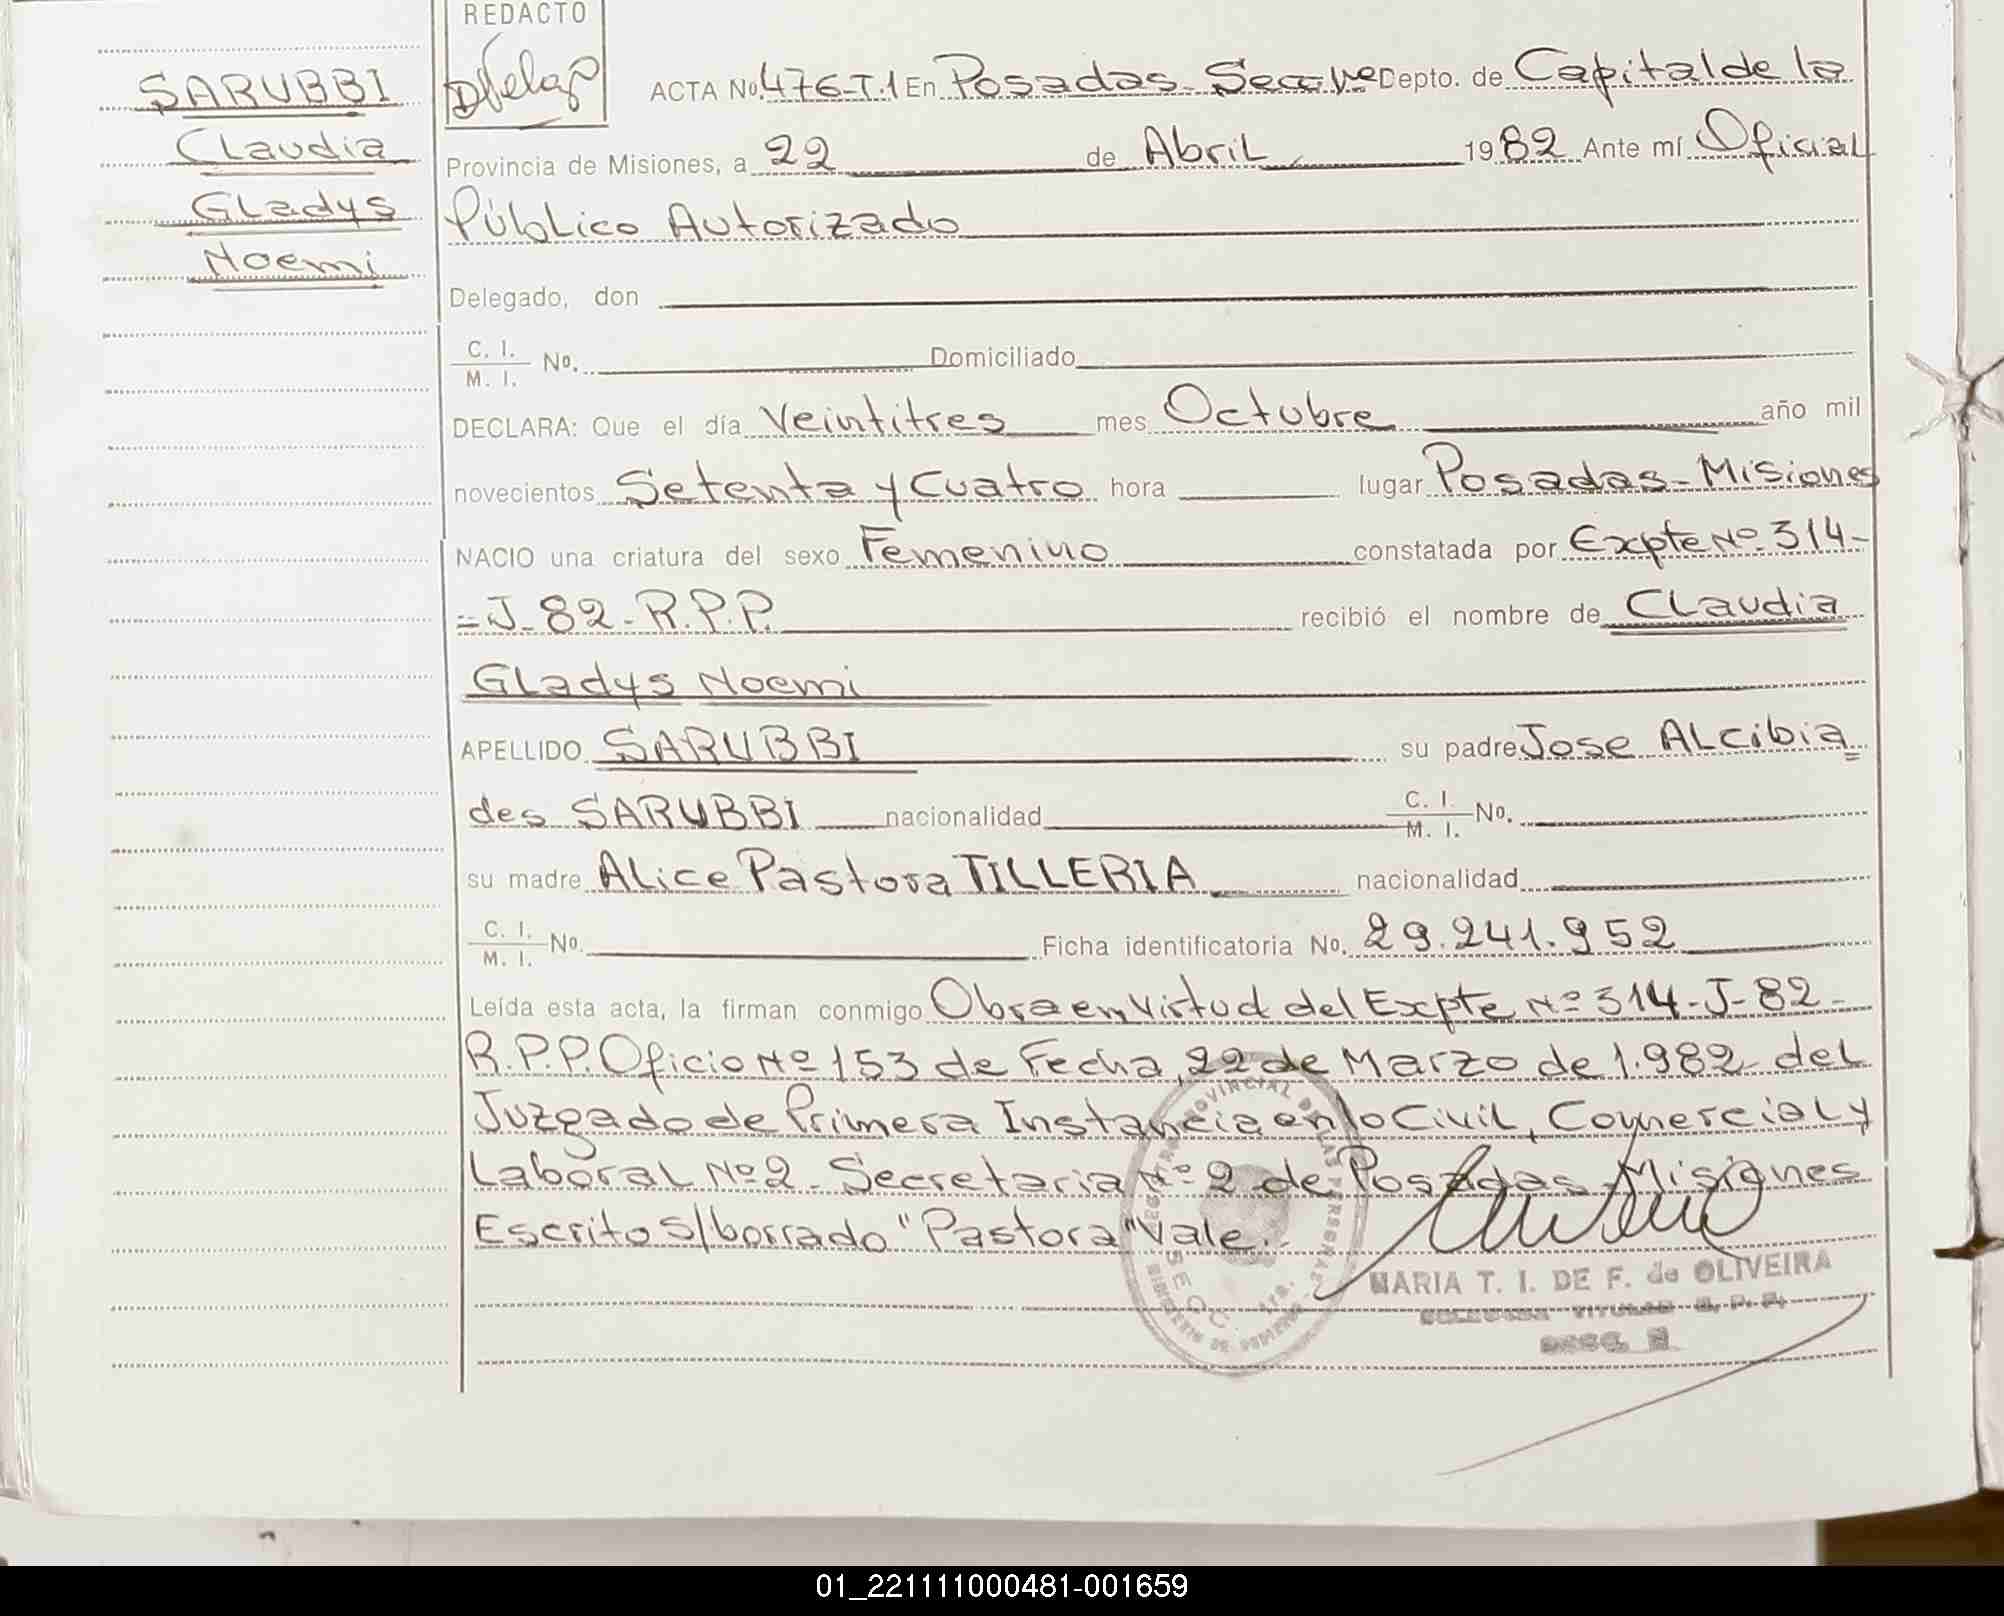 REDACTO
SARUBBI
Claudia
Gladys
Noemi
ACTA No. 476-T.1 En Posadas - Secc. Vª Depto. de Capital de la
Provincia de Misiones, a 22 de Abril 1982 Ante mí Oficial
Público Autorizado
Delegado, don
C. I. / M. I. No. Domiciliado
DECLARA: Que el día Veintitres mes Octubre año mil
novecientos Setenta y Cuatro hora lugar Posadas - Misiones
NACIO una criatura del sexo Femenino constatada por Expte Nº 314-
=J-82-R.P.P. recibió el nombre de Claudia
Gladys Noemi
APELLIDO SARUBBI su padre Jose Alcibia=
des SARUBBI nacionalidad C. I. / M. I. No.
su madre Alice Pastora TILLERIA nacionalidad
C. I. / M. I. No. Ficha identificatoria No. 29.241.952
Leída esta acta, la firman conmigo Obra en virtud del Expte Nº 314-J-82-
R.P.P. Oficio Nº 153 de Fecha, 22 de Marzo de 1.982 del
Juzgado de Primera Instancia en lo Civil, Comercial y
Laboral Nº 2 - Secretaria Nº 2 de Posadas - Misiones
Escrito s/borrado "Pastora" Vale.-
MARIA T. I. DE F. de OLIVEIRA
01_221111000481-001659